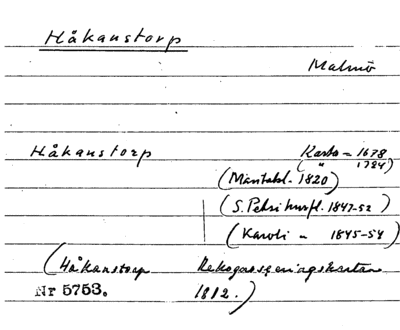 Håkanstorp
Malmö
Håkanstorp Karta - 1678
( " 1784)
(Mantalsl. 1820)
(S. Petri husfl. 1847-52)
(Karoli " 1845-54)
(Håkanstorp Rekognosceringskartan
Nr 5753. 1812.)